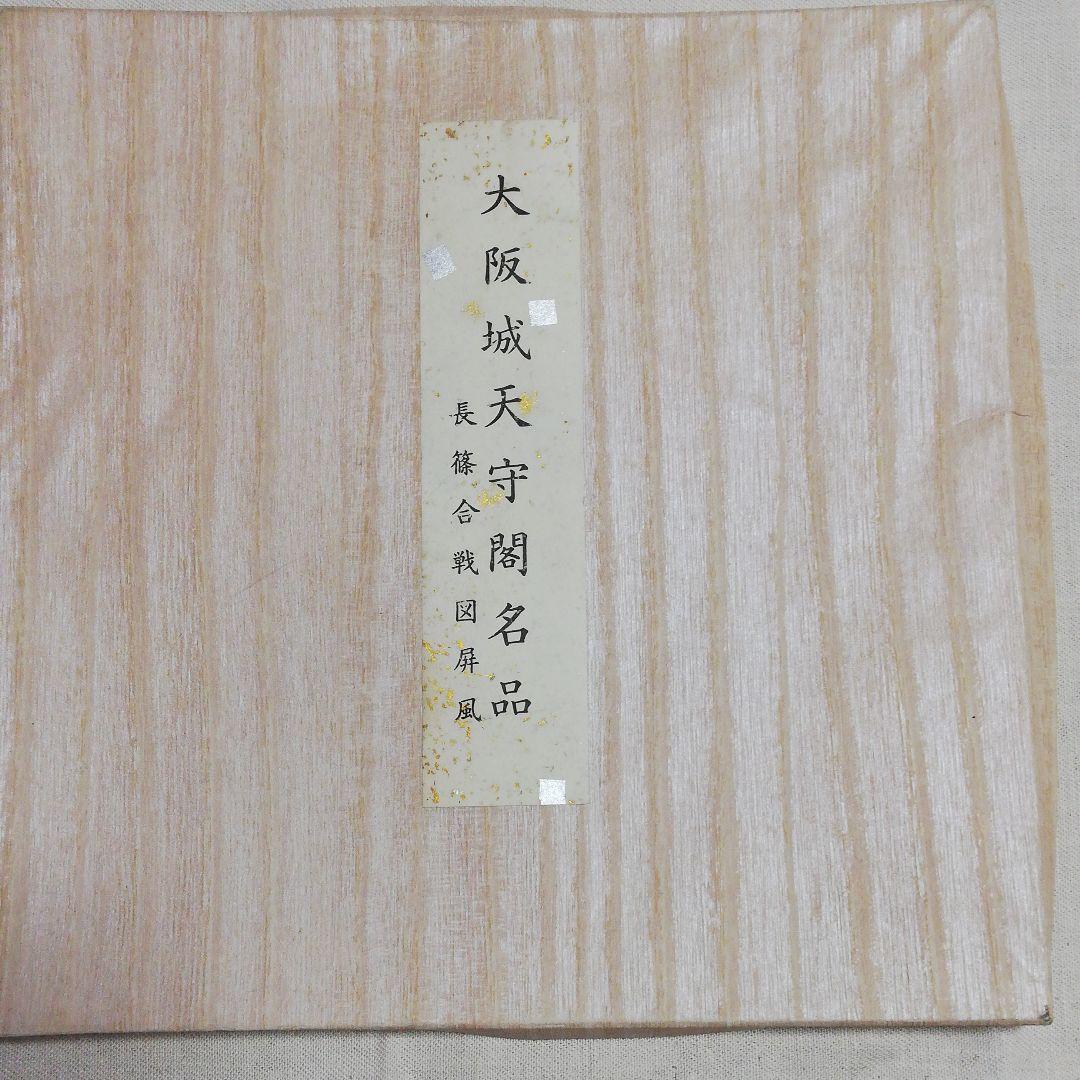 大阪城天守閣名品
長篠合戦図屏風